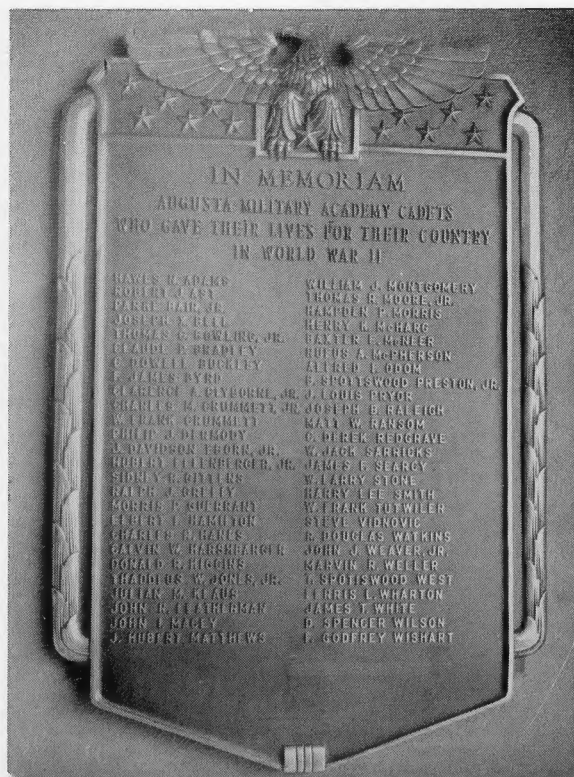 IN MEMORIAM
AUGUSTA MILITARY ACADEMY CADETS
WHO GAVE THEIR LIVES FOR THEIR COUNTRY
IN WORLD WAR II
HAWES N. ADAMS
ROBERT J. AST
PARKE BAIR, JR.
JOSEPH T. BELL
THOMAS G. BOWLING, JR.
CLAUDE P. BRADLEY
C. DOWELL BUCKLEY
JAMES BYRD
CLARENCE A. CLYBORNE, JR.
CHARLES M. CRUMMETT, JR.
W. FRANK CRUMMETT
PHILIP J. DERMODY
J. DAVIDSON EBORN, JR.
HUBERT ELLENBERGER, JR.
SIDNEY R. GITTENS
RALPH J. GREELY
MORRIS P. GUERRANT
ELBERT T. HAMILTON
CHARLES M. HANES
GALVIN W. HARSHBARGER
DONALD R. HIGGINS
THADDEUS W. JONES, JR.
JULIAN M. KLAUS
JOHN H. LEATHERMAN
JOHN J. MACEY
J. HUBERT MATTHEWS
WILLIAM J. MONTGOMERY
THOMAS R. MOORE, JR.
HAMPDEN P. MORRIS
HENRY K. McHARG
BAXTER L. McNEER
RUFUS A. McPHERSON
ALFRED L. ODOM
F. SPOTTSWOOD PRESTON, JR.
J. LOUIS PRYOR
JOSEPH B. RALEIGH
MATT W. RANSOM
C. DEREK REDGRAVE
W. JACK SARRICKS
JAMES F. SEARCY
W. LARRY STONE
HARRY LEE SMITH
W. FRANK TUTWILER
STEVE VIDNOVIC
R. DOUGLAS WATKINS
JOHN J. WEAVER, JR.
MARVIN R. WELLER
T. SPOTISWOOD WEST
FERRIS L. WHARTON
JAMES T. WHITE
D. SPENCER WILSON
F. GODFREY WISHART